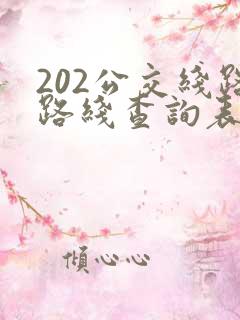 202公交綫路
路綫查詢表
傾心心